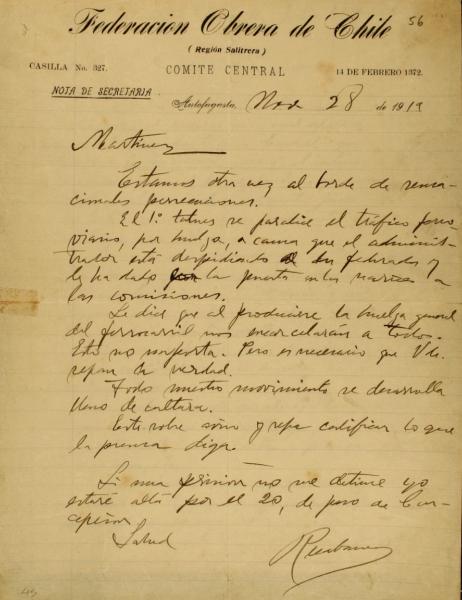 56
Federacion Obrera de Chile
( Región Salitrera )
CASILLA No. 327.
COMITE CENTRAL
14 DE FEBRERO 1372.
NOTA DE SECRETARIA
Antofagasta, Nov. 28 de 1919
Martínez
Estamos otra vez al borde de
persecuciones.
El 1º talves se paralice el tráfico ferro-
viario, por huelga, a causa que el administ-
trador está despidiendo federados y
le ha dado la puerta en las narices a
las comisiones.
Se dice que al producirse la huelga general
del ferrocarril nos encarcelarán a todos.
Esto no importa. Pero es necesario que Vds.
sepan la verdad.
Todo nuestro movimiento se desarrolla
lleno de cultura.
Este sobre y sepa calificar lo que
la prensa diga.
Si una prisión no me detiene yo
estaré allá por el 20, de paso de Con-
cepción
Salud